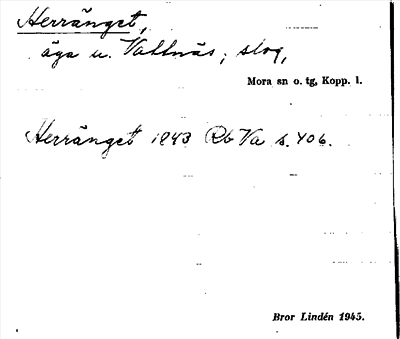 Herränget,
äga u. Vattnäs, slog,
Mora sn o. tg, Kopp. l.
Herränget 1843 Rb Va s. 406.
Bror Lindén 1945.